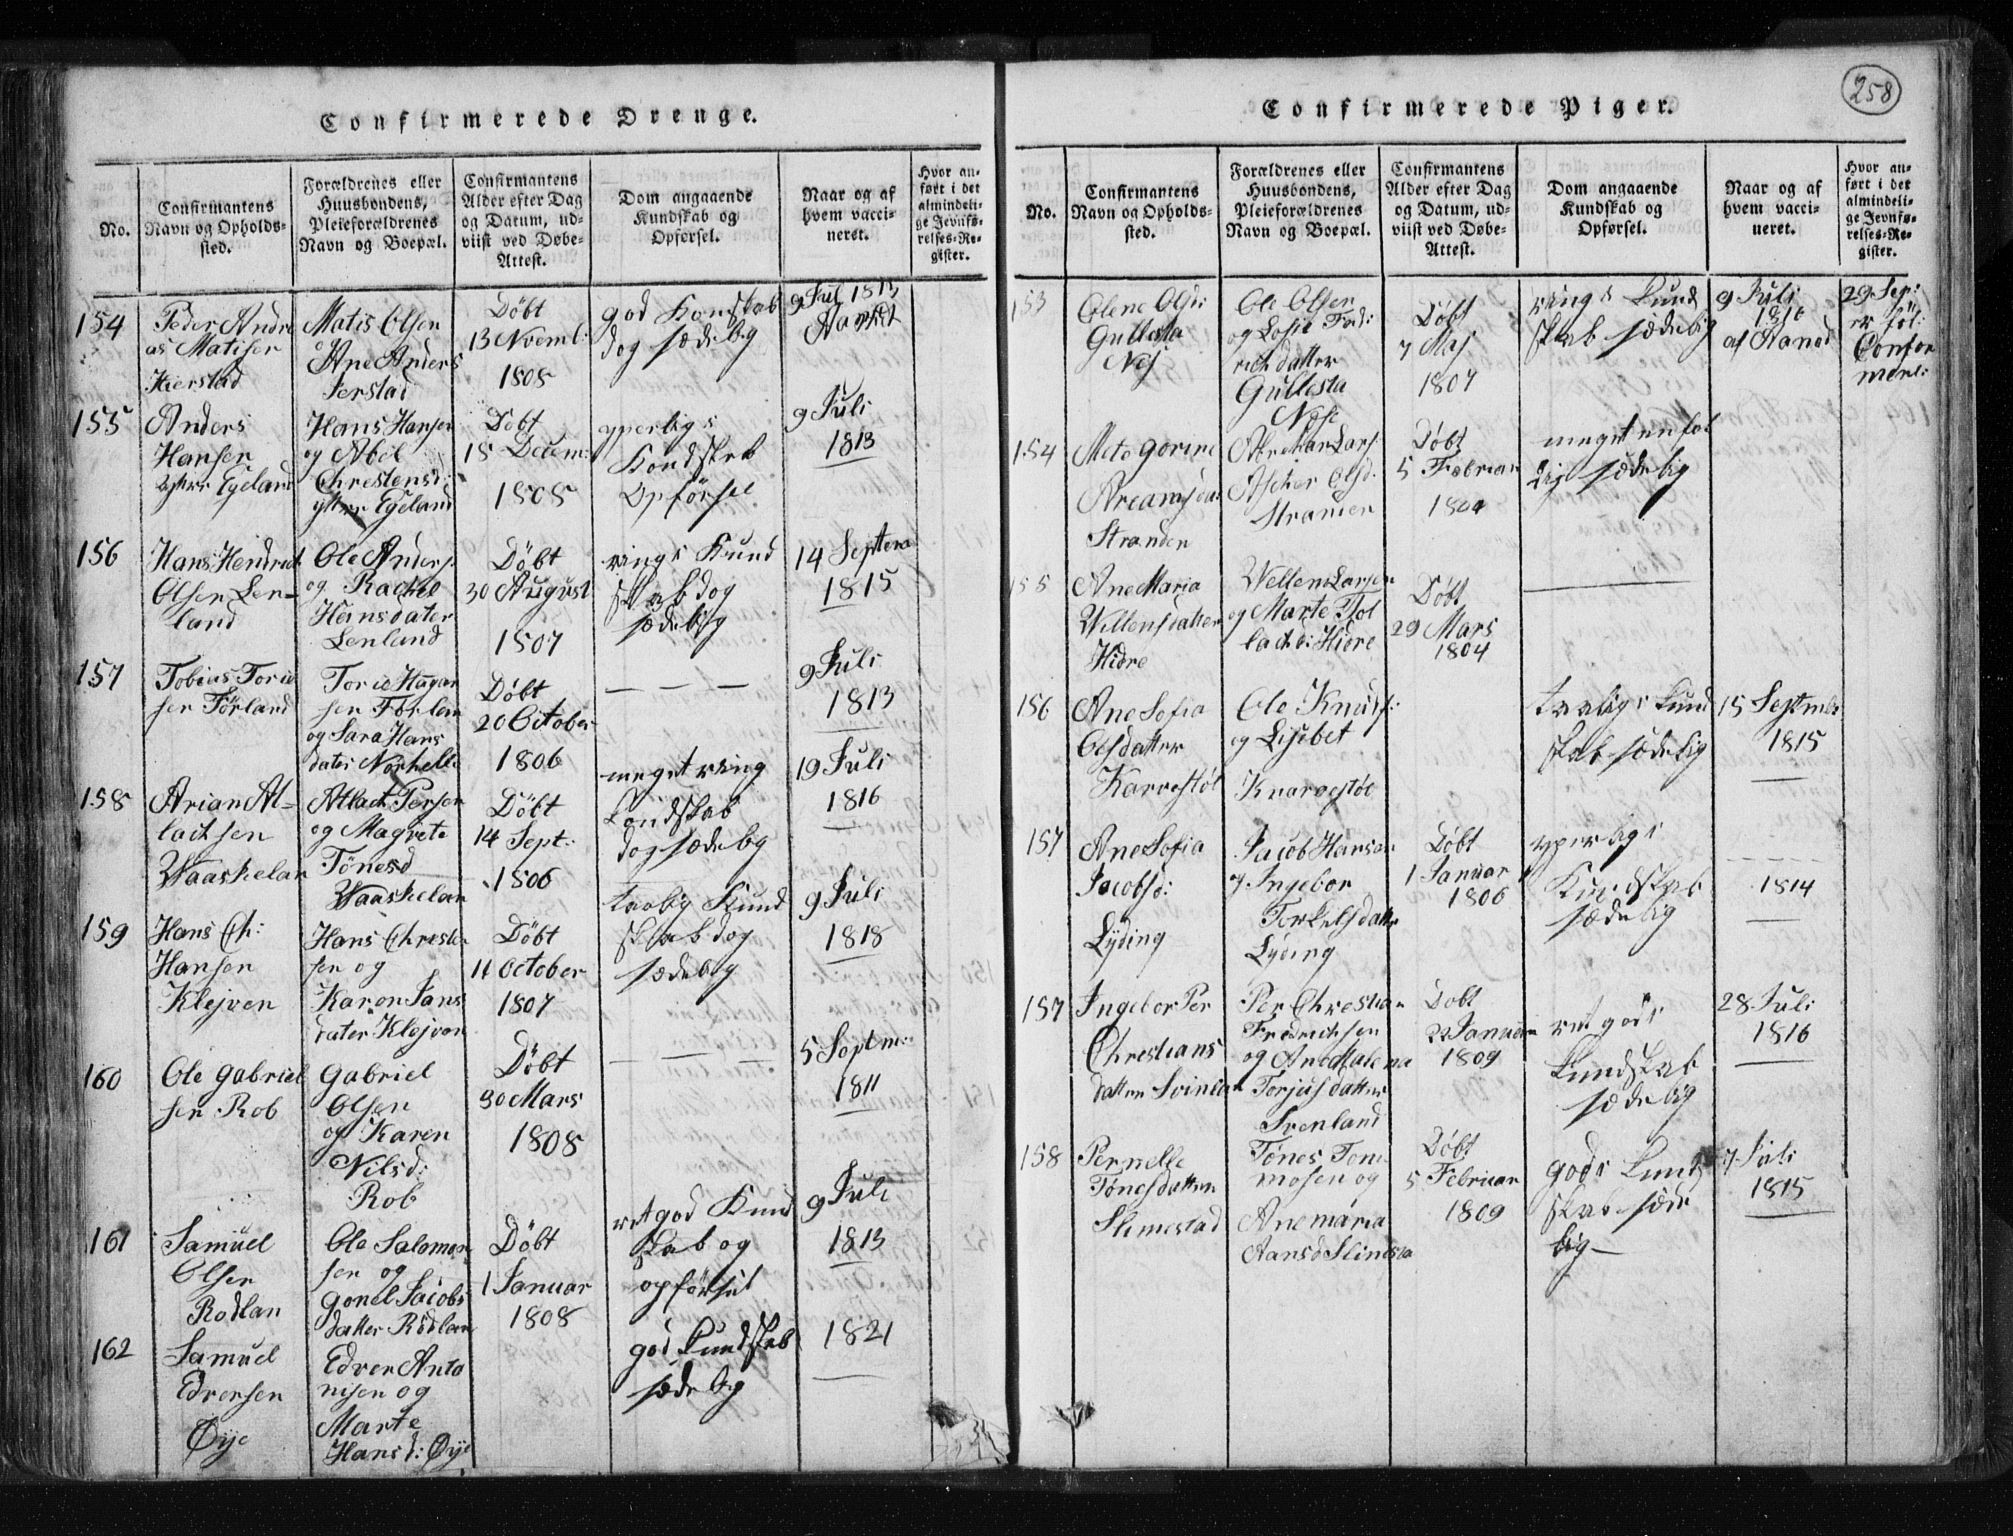 258
Confirmerede Drenge.
No.
Confirmantens
Navn og Opholds-
sted.
Forældrenes eller
Huusbondens,
Pleieforældrenes
Navn og Boepæl.
Confirmantens
Alder efter Dag
og Datum, ud-
viist ved Døbe-
Attest.
Dom angaaende
Kundskab og
Opførsel.
Naar og af
hvem vacci-
neret.
Hvor an-
ført i det
almindeli-
ge Jevnfø-
relses-Re-
gister.
154
Peder Andre
as Matisen
Kierstad
Matis Olsen
og Ane Anders
Døbt
13 Novemb:
1808
god Konskab
dog sædelig
9 Jul 1813
155
Anders
Hansen
ytter Egeland
Hans Hansen
og Abel
Chrestensd:
ytter Egeland
Døbt
18 Decem:
1808
yperligs
Kondskab
Opførsel
9 Juli
1813
156
Hans Hendrick
Olsen Len-
land
Ole Anders:
og Rachel
Hansdater
Lenland
Døbt
30 August
1807
rings Kund
skab dog
sædelig
14 Septem
1815
157
Tobias Toris
sen Førland
Toris Hagen
sen Førlan
og Sara Hans
dater Norhelle
Døbt
20 October
1806
9 Juli
1813
158
Arian At-
lacksen
Waaskelan
Atlack Persen
og Magrete
Tønesd
Waaskelan
Døbt
14 Sept:
1806
meget ring
Kundskab
dog sædelig
19 Juli
1816
159
Hans Ch:
Hansen
Klejven
Hans Chresten
sen og
Karen Jans
dater Klejven
Døbt
11 October
1807
taalig Kund
skab dog
sædelig
9 Juli
1818
160
Ole Gabriel
sen Rob
Gabriel
Olsen
og Karen
Nilsd:
Rob
Døbt
30 Mars
1808
5 Septm:
1811
161
Samuel
Olsen
Rødlan
Ole Salomon
sen og
Gonel Jacobs
datter Rødlan
Døbt
1 Januar
1808
ret god Kund
skab og
opførsel
9 Juli
1813
162
Samuel
Edversen
Øÿe
Edver Anto
nisen og
Marte
Hansd: Øÿe
god Kundskab
sædelig
1821
Confirmerede Piger.
No.
Confirmantens
Navn og Opholds-
sted.
Forældrenes eller
Huusbondens,
Pleieforældrenes
Navn og Boepæl.
Confirmantens
Alder efter Dag
og Datum, ud-
viist ved Døbe-
Attest.
Dom angaaende
Kundskab og
Opførsel.
Naar og af
hvem vacci-
neret.
Hvor an-
ført i det
almindeli-
ge Jevnfø-
relses-Re-
gister.
153
Olene Olsd:
Gullesta
Nej
Ole Olsen
og Sofie Fred:
rickdatter
Gullesta
Døbt
7 Maj
1807
rings Kund
skab sædelig
9 Juli
1816
29 Sep:
154
Mete Gorine
Stranden
Døbt
5 Februar
1804
meget enfol
dig sædelig
155
Ane Maria
Willemsdatter
Hidre
Wellem Larsen
og Marte Tol
lachd: Hidre
Døbt
29 Mars
1804
156
Ane Sofia
Olsdatter
Karvestøl
Ole Knuds:
og Lisibet
Kvarvestøl
taaligs Kund
skab sædelig
15 Septmbr
1815
157
Ane Sofia
Jacobsd:
Lÿding
Jacob Hansen
Ingebor
Torkelsdatter
Lÿding
Døbt
1 Januar
1806
yperligs
Kundskab
sædelig
1814
157
Ingebor Per
Chrestians
datter
Per Chrestian
Fredricksen
og Ane Malena
Torjusdatter
Døbt
22 Januar
1809
ret gods
Kundskab
sædelig
28 Juli
1816
158
Pernelle
Tønesdatter
Slimestad
Tønes Tom
mosen og
Ane maria
Døbt
5 Februar
1809
gods Kund
skab sæde
lig
7 Juli
1815